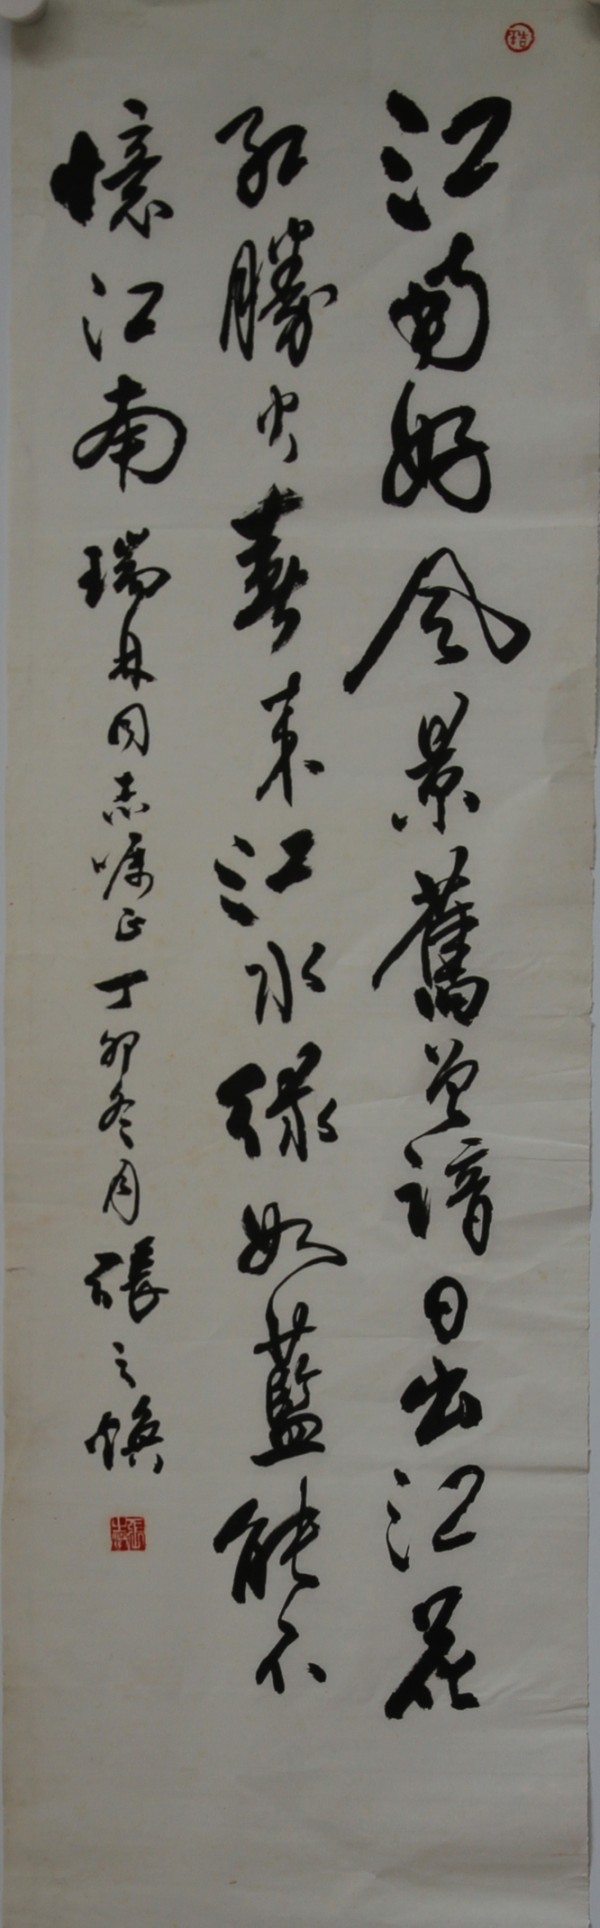 江南好風景舊曾諳日出江花
紅勝火春來江水緑如藍能不
憶江南 瑞林同志嘱正 丁卯冬月 張之焕